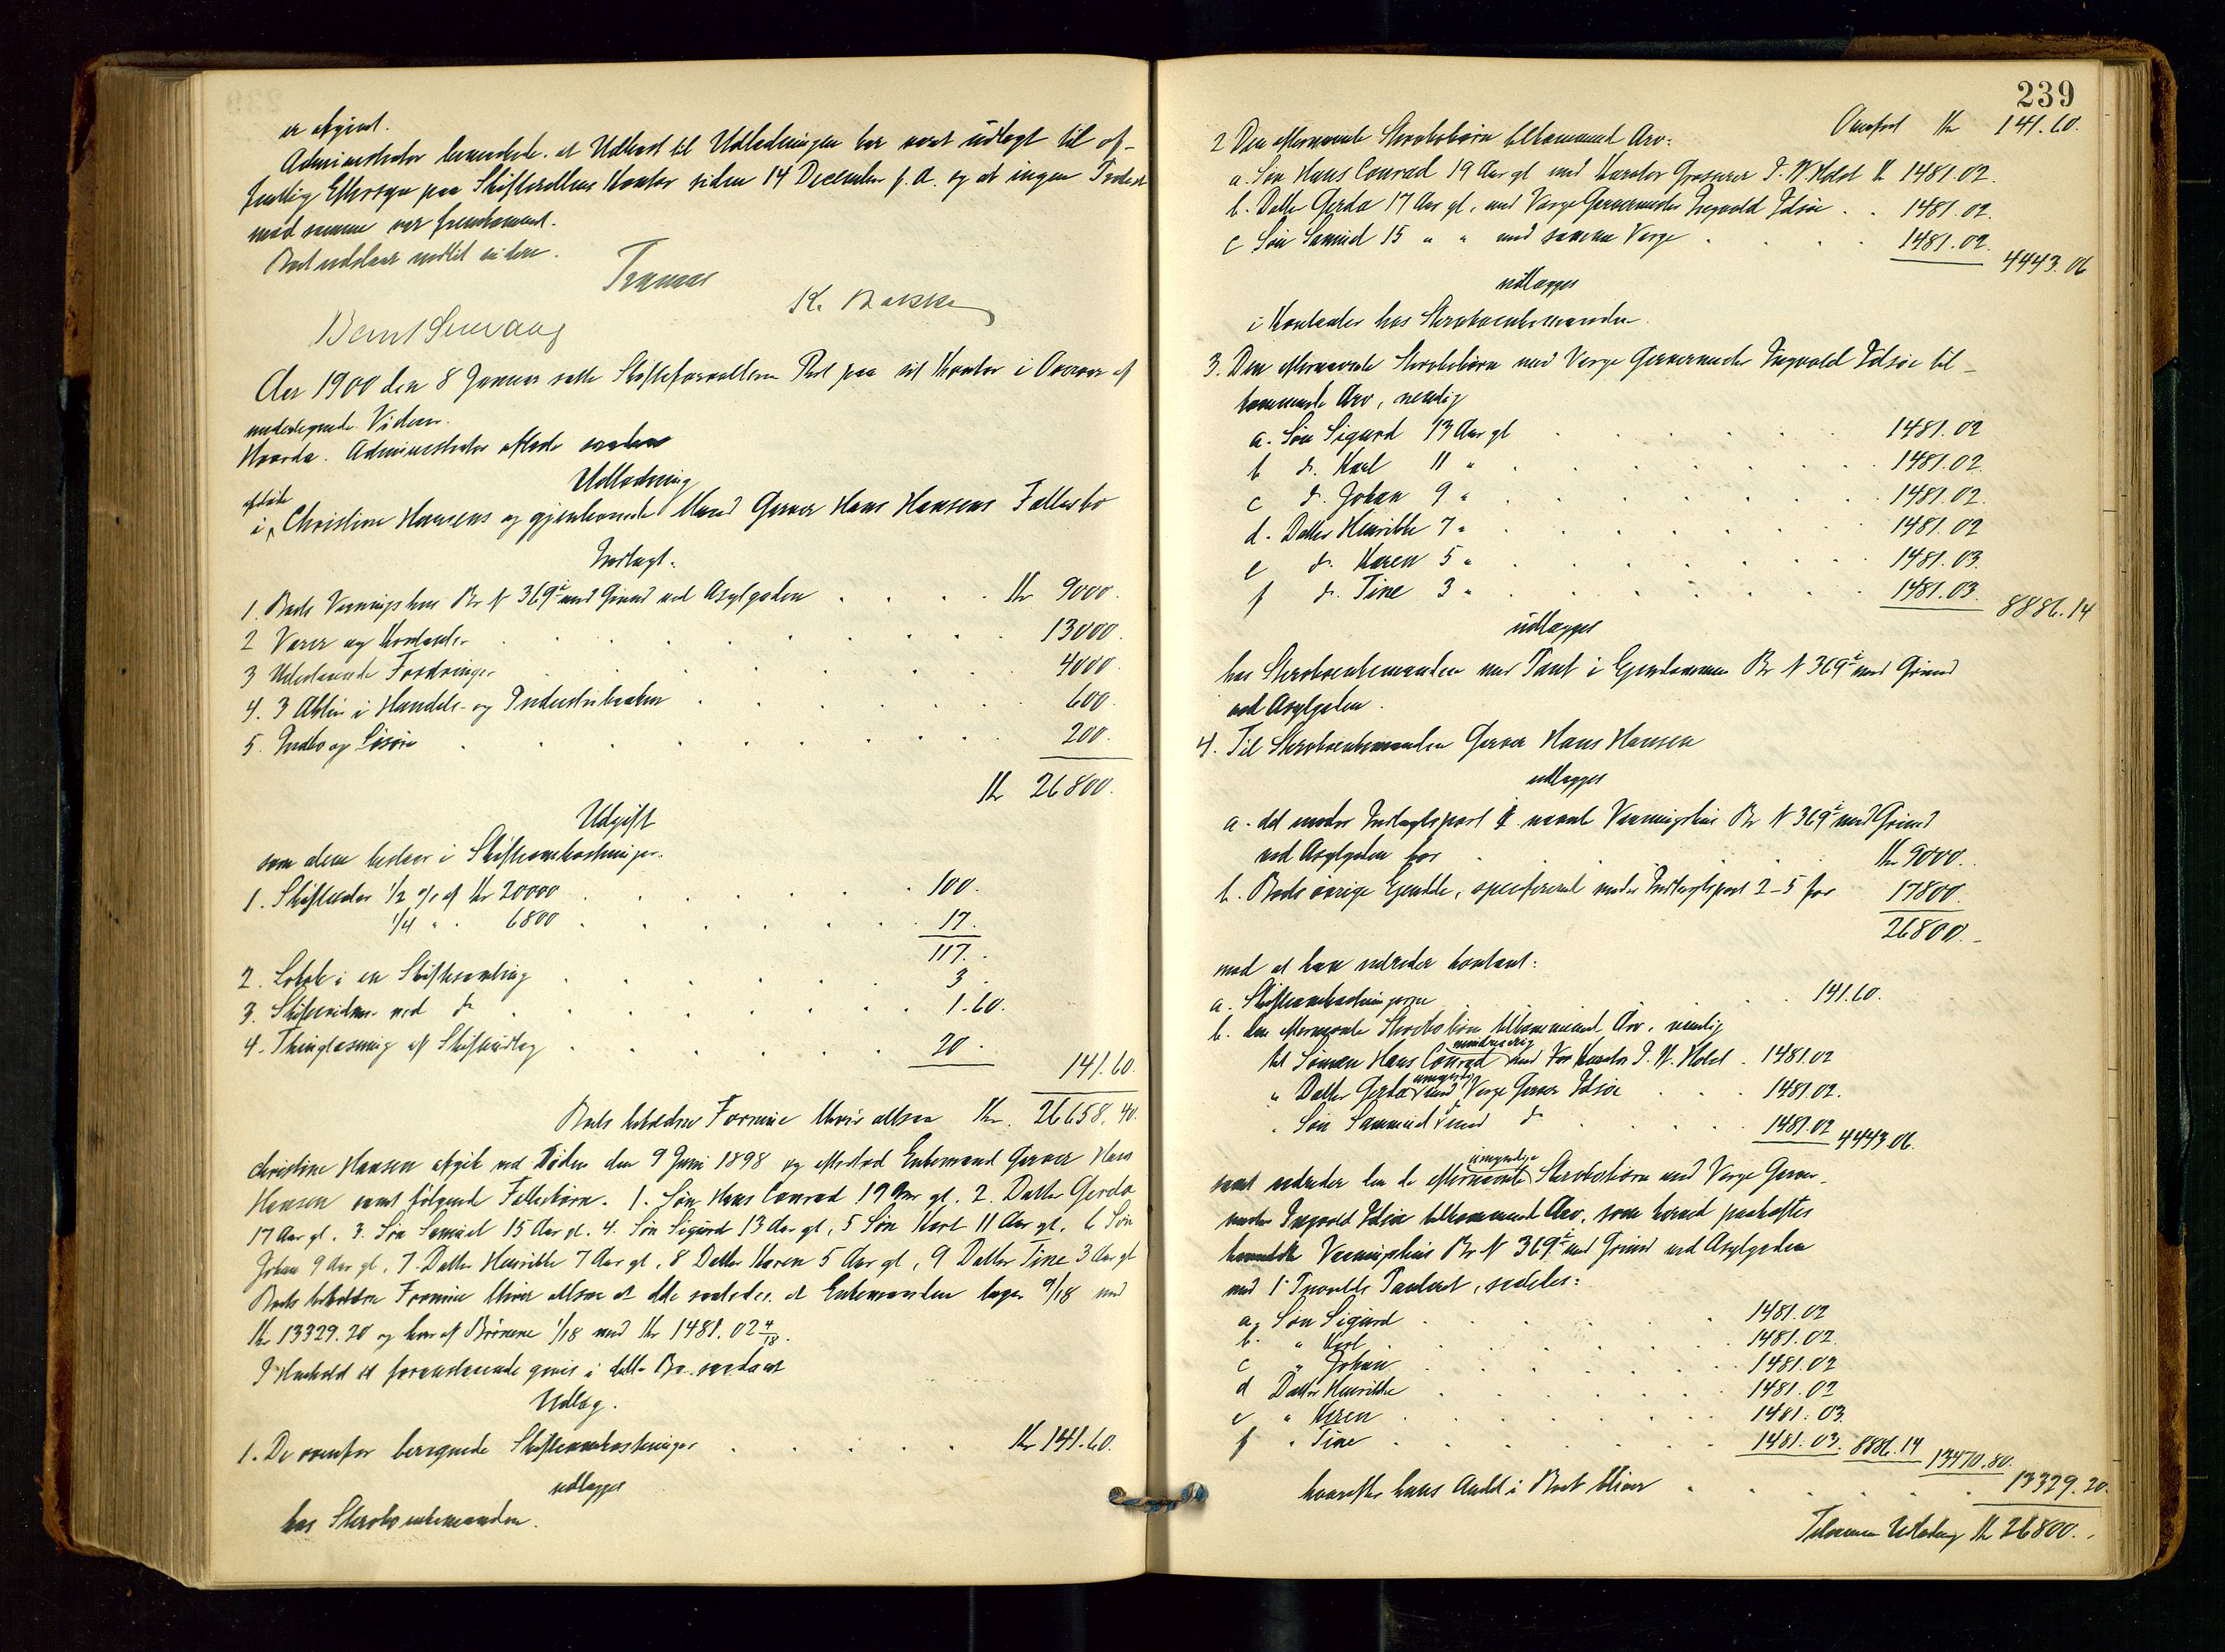 er afgivet.
Administrator bemærkede. at Udkast til Udlodningen har været udlagt til of-
fentlig Eftersyn paa Skifterettens Kontor siden 14 December f. A. og at ingen Protest
mod samme var fremkommet.
Boet udstaar indtil videre.
K. Bakke
Aar 1900 den 8 Januar satte Skifteforvalteren Ret paa sit Kontor i Overvær af
undertegnede Vidner.
Hvorda. Administrator afsluttede saadan
Udlodning
afdøde
i Christine Hansens og gjenlevende Mand Garver Hans Hansens Fællesbo
Indtægt.
1. Boets Vaaningshus Br N 369 c med Grund ved Asylgaden Kr 9000.
2 Varer og Kontanter 13000.
3 Udestaaende Fordringer 4000.
4. 3 Aktier i Handels- og Industribanken 600.
5. Indbo og Løsøre 200.
Kr 26800.
Udgift
som alene bestaar i Skifteomkostninger.
1. Skifteafgift 1/2 % af Kr 20000 100.
1/4 " " 6800 17.
117.
2. Lokale i en Skiftesamling 3.
3. Skiftevidner ved do 1.60.
4. Thinglæsning af Skifteudlæg 20.
141.60.
Boets beholdne Formue bliver altsaa Kr. 26658.40.
Christine Hansen afgik ved Døden den 9 Juni 1898 og efterlod Enkemand Garver Hans
Hansen samt følgende Fællesbørn. 1. Søn Hans Conrad 19 Aar gl. 2. Datter Gerda
17 Aar gl. 3. Søn Samuel 15 Aar gl. 4. Søn Sigurd 13 Aar gl, 5 Søn Karl 11 Aar gl, 6 Søn
Johan 9 Aar gl, 7. Datter Henrikke 7 Aar gl, 8 Datter Karen 5 Aar gl, 9 Datter Tine 3 Aar gl
Boets beholdne Formue bliver altsaa at dele saaledes, at Enkemanden tager 9/18 med
Kr 13329.20 og hver af Børnene 1/18 med Kr 1481.02 4/18.
I Henhold til foranstaaende gives i dette Bo saadant
Udlæg.
1. De ovenfor beregnede Skifteomkostninger Kr 141.60.
udlægges
hos Stervboenkemanden.
239
Overført Kr 141.60.
2 Den efternævnte Stervbobørn tilkommende Arv:
a. Søn Hans Conrad 19 Aar gl med Kurator Grosserer P. W. Holst Kr 1481.02.
b. Datter Gerda 17 Aar gl, med Værge Garvermester Ingvald Idsøe 1481.02.
c Søn Samuel 15 " " med samme Værge 1481.02.
4443.06
udlægges
i Kontanter hos Stervboenkemanden.
3. Den efternævnte Stervbobørn med Værge Garvermester Ingvald Idsøe til-
kommende Arv, nemlig
a. Søn Sigurd 13 Aar gl 1481.02
b do. Karl 11 " 1481.02.
c do. Johan 9 " 1481.02.
d. Datter Henrikke 7 " 1481.02
e do. Karen 5 " 1481.03.
f do. Tine 3 " 1481.03.
8886.14
udlægges
hos Stervboenkemanden mod Pant i Ejendommen Br N 369 c med Grund
ved Asylgaden.
4. Til Stervboenkemanden Garver Hans Hansen
udlægges
a. det under Indtægtspost 1 nævnte Vaaningshus Br N 369 c med Grund
ved Asylgaden for Kr 9000.
b. Boets øvrige Ejendele, specificeret under Indtægtspost 2-5 for 17800.
26800.-
mod at han udreder kontant:
a. Skifteomkostningerne 141.60.
b. den efternævnte Stervbobørn tilkommende Arv, nemlig
mindreaarig
til Sønnen Hans Conrad med Kurator P. W. Holst 1481.02
umyndig
" Datter Gerda med Værge Garver Idsøe 1481.02.
" Søn Samuel do med do 1481.02 4443.06.
umyndige
samt udreder den de efternævnte Stervbobørn med Værge Garver-
mester Ingvald Idsøe tilkommende Arv, som herved paahæftes
bemeldte Vaaningshus Br N 369 c med Grund ved Asylgaden
med 1 Prioritets Panteret, saaledes:
a, Søn Sigurd 1481.02
b. " Karl 1481.02.
c " Johan 1481.02
d Datter Henrikke 1481.02
e " Karen 1481.03.
f " Tine 1481.03. 8886.14 13470.80.
hvorefter hans Andel i Boet bliver 13329.20.
Tilsammen Udlodning Kr 26800.